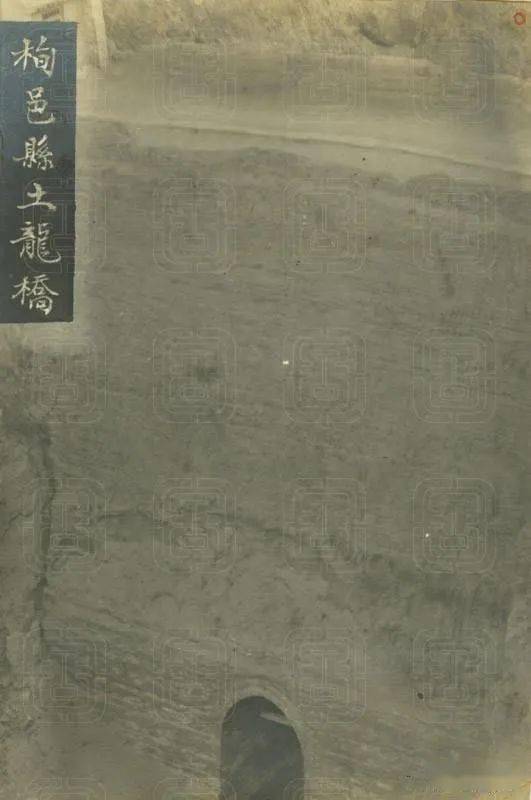 栒邑縣土龍橋